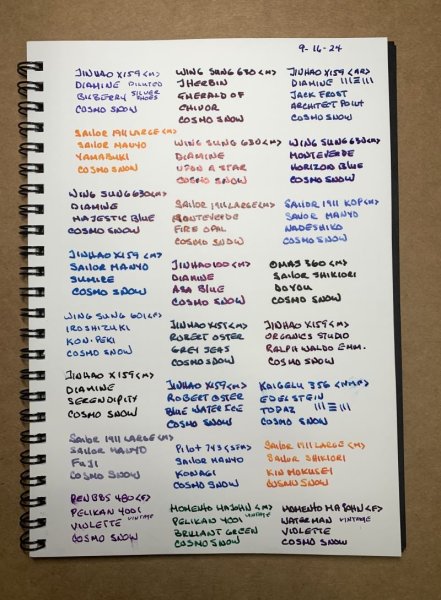 9-16-24
JINHAO X159 <M>
DIAMINE DILUTED
BILBERRY SILVER SHOES
COSMO SNOW
WING SUNG 630 <M>
JHERBIN
EMERALD OF
CHIVOR
COSMO SNOW
JINHAO X159
DIAMINE
JACK FROST
ARCHITECT POINT
COSMO SNOW
SAILOR 1911 LARGE <M>
SAILOR MANYO
YAMABUKI
COSMO SNOW
WING SUNG 630 <M>
DIAMINE
UPON A STAR
COSMO SNOW
WING SUNG 630 <M>
MONTEVERDE
HORIZON BLUE
COSMO SNOW
WING SUNG 630 <M>
DIAMINE
MAJESTIC BLUE
COSMO SNOW
SAILOR 1911 LARGE <M>
MONTEVERDE
FIRE OPAL
COSMO SNOW
SAILOR 1911 KOP <M>
SAILOR MANYO
NADESHIKO
COSMO SNOW
JINHAO X159 <M>
SAILOR MANYO
SUMIRE
COSMO SNOW
JINHAO 100 <M>
DIAMINE
ASA BLUE
COSMO SNOW
OMAS 360 <M>
SAILOR SHIKIORI
DOYOU
COSMO SNOW
WING SUNG 601 <F>
IROSHIZUKU
KON-PEKI
COSMO SNOW
JINHAO X159 <M>
ROBERT OSTER
GREY SEAS
COSMO SNOW
JINHAO X159 <M>
ORGANICS STUDIO
RALPH WALDO EMM.
COSMO SNOW
JINHAO X159 <M>
DIAMINE
SERENDIPITY
COSMO SNOW
JINHAO X159 <M>
ROBERT OSTER
BLUE WATER ICE
COSMO SNOW
KAIGELU 356
EDELSTEIN
TOPAZ
COSMO SNOW
SAILOR 1911 LARGE <M>
SAILOR MANYO
FUJI
COSMO SNOW
PILOT 743 <FM>
SAILOR MANYO
KONAGI
COSMO SNOW
SAILOR 1911 LARGE <M>
SAILOR SHIKIORI
KIN MOKUSEI
COSMO SNOW
PENBBS 480 <F>
PELIKAN 4001
VIOLETTE VINTAGE
COSMO SNOW
MOMENTO MAJOHN <M>
PELIKAN 4001 VINTAGE
BRILLANT GREEN
COSMO SNOW
MOMENTO MAJOHN <F>
WATERMAN VINTAGE
VIOLETTE
COSMO SNOW